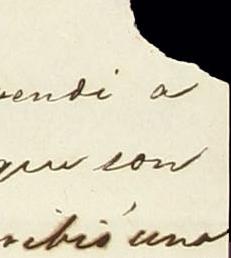 vendi a
que con
cribió una